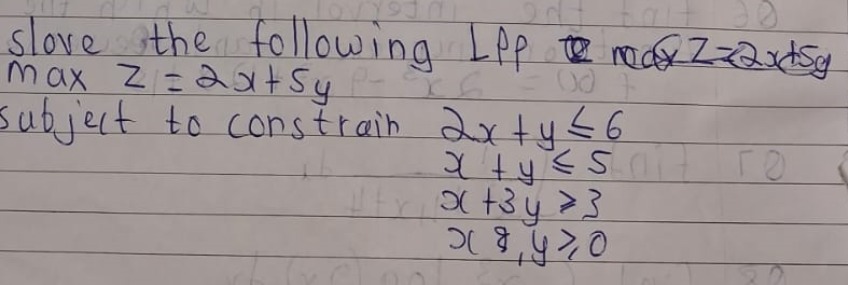 slove the following LPP Z=2x+5y
max Z = 2x+5y
subject to constrain 2x + y ≤ 6
x + y ≤ 5
x + 3y ≥ 3
x &, y ≥ 0